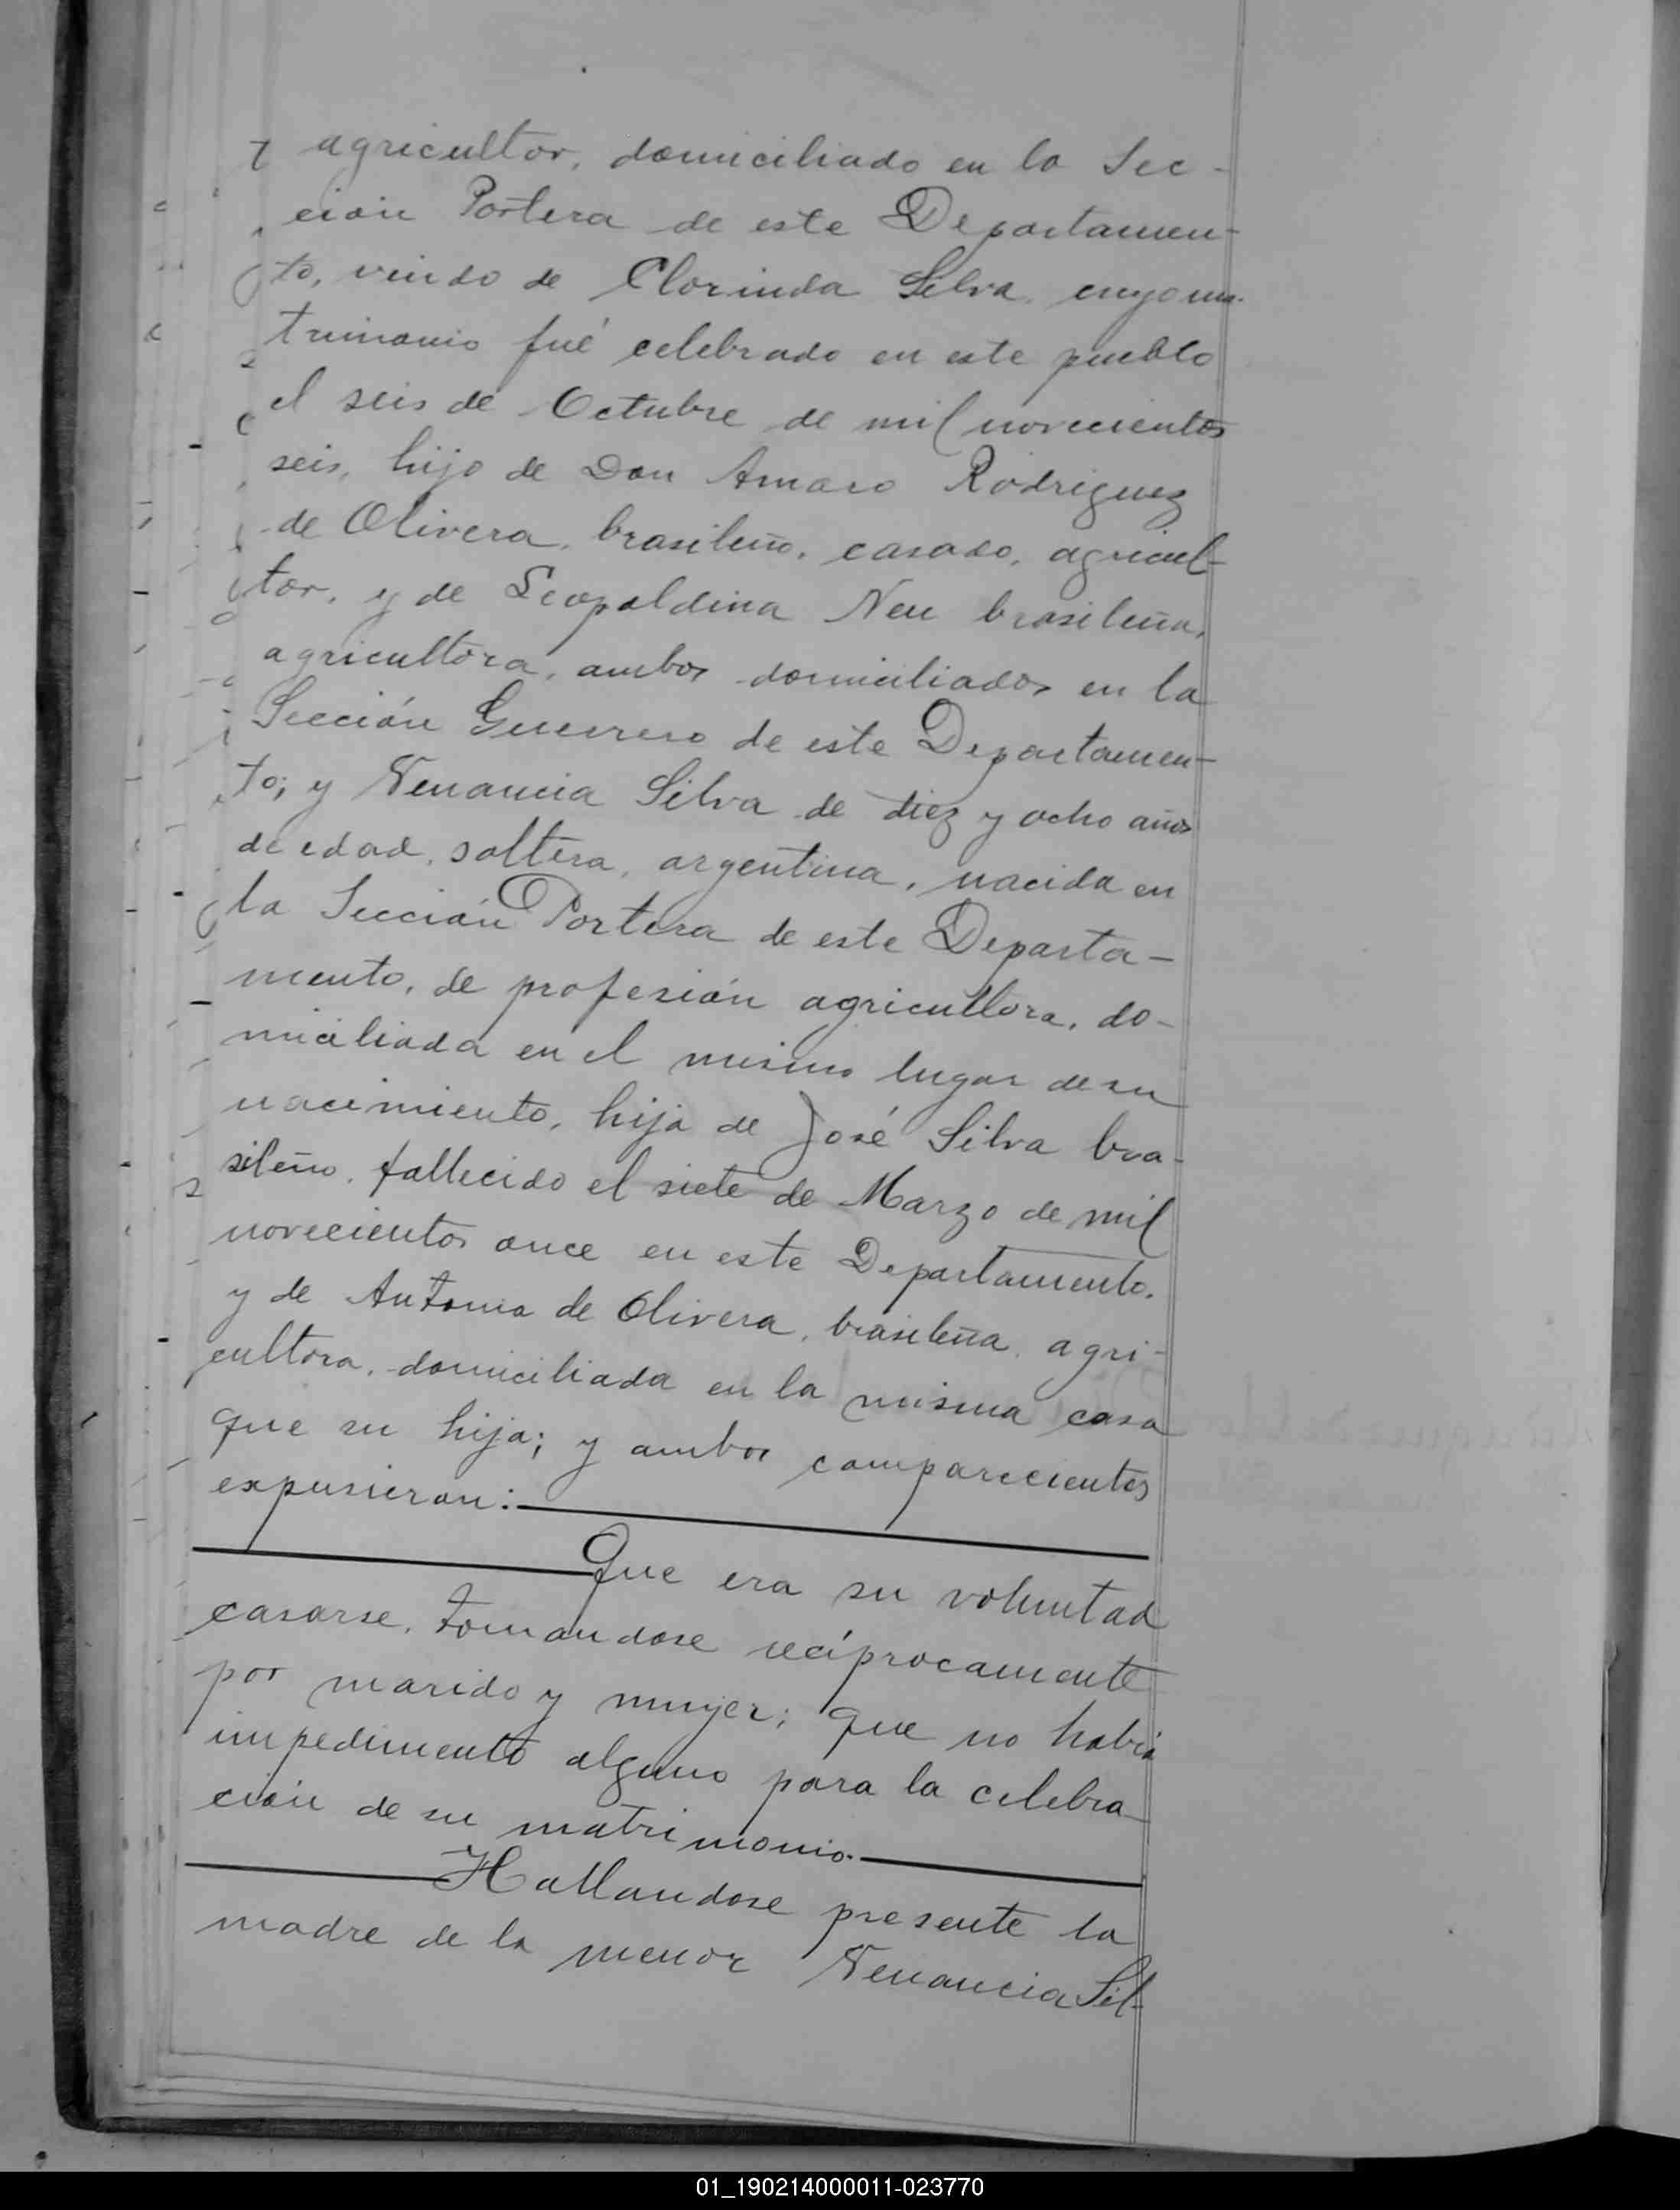 agricultor, domiciliado en la Sec-
ción Portera de este Departamen-
to, viudo de Clorinda Silva, cuyo ma-
trimonio fué celebrado en este pueblo
el seis de Octubre de mil novecientos
seis, hijo de Don Amaro Rodriguez
de Olivera, brasileño, casado, agricul-
tor, y de Leopoldina Neu brasileña,
agricultora, ambos domiciliados en la
Sección Guerrero de este Departamen-
to; y Venancia Silva de diez y ocho años
de edad, soltera, argentina, nacida en
la Sección Portera de este Departa-
mento, de profesión agricultora, do-
miciliada en el mismo lugar de su
nacimiento, hija de José Silva bra-
sileño, fallecido el siete de Marzo de mil
novecientos once en este Departamento,
y de Antonia de Olivera, brasileña, agri-
cultora, domiciliada en la misma casa
que su hija; y ambos comparecientes
expusieron:
Que era su voluntad
casarse, tomandose recíprocamente
por marido y mujer; que no había
impedimento alguno para la celebra-
ción de su matrimonio.
Hallandose presente la
madre de la menor Venancia Sil-
01_190214000011-023770